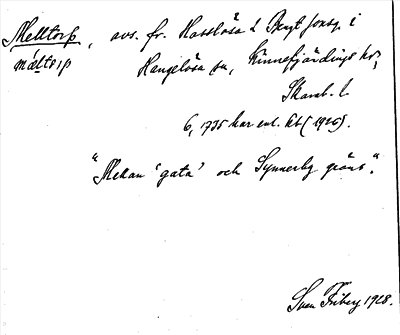 Melltorp, avs. fr. Hasslösa & Bengt Jonsg. i
mä̀lto̲rp Hangelösa sn, Kinnefjärdings hd,
Skarab. l.
6,1735 har enl. kt (1926).
"Mellan 'gata' och Synnerby gräns".
Sven Friberg 1928.